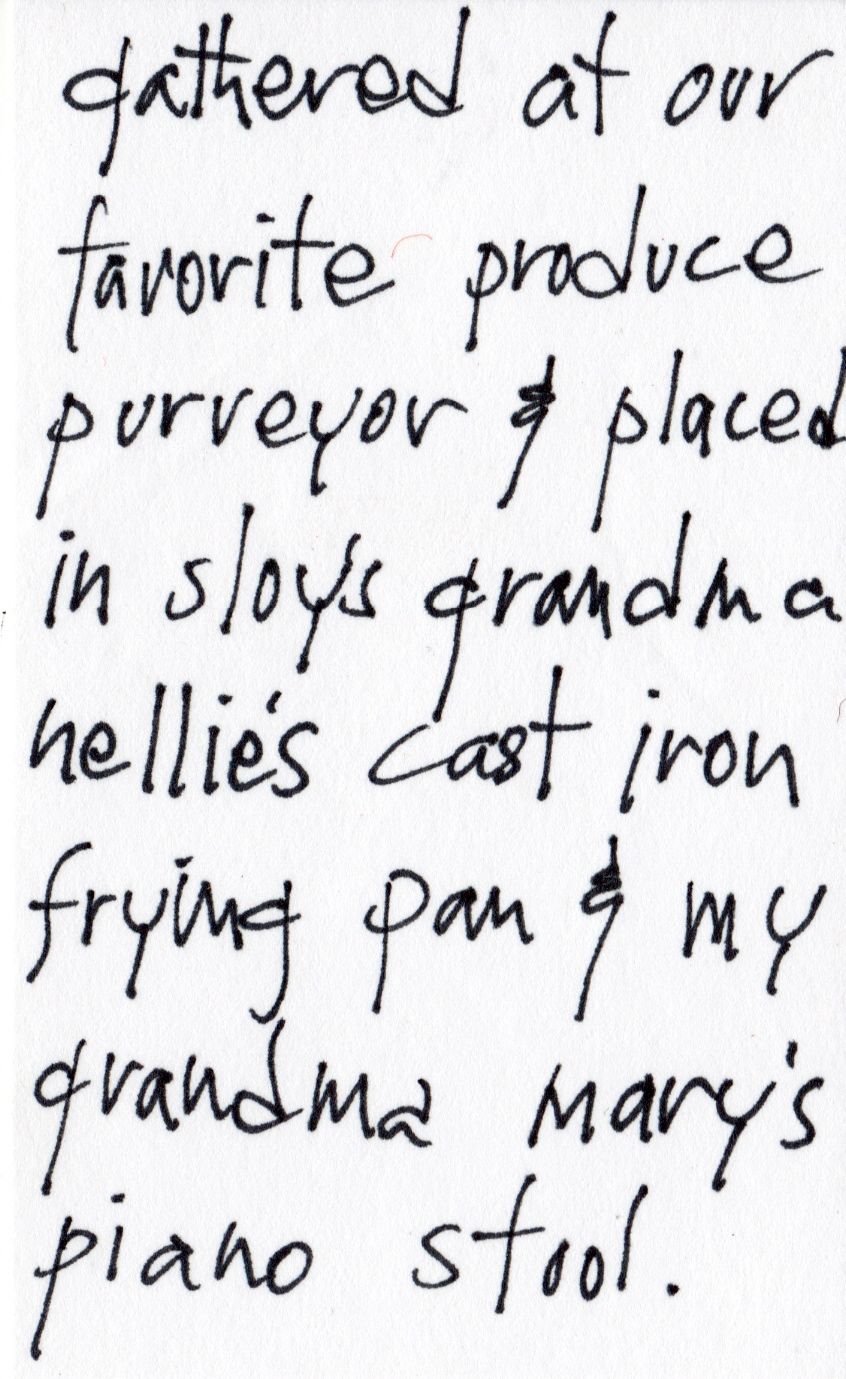 gathered at our
favorite produce
purveyor & placed
in sloy's grandma
nellie's cast iron
frying pan & my
grandma mary's
piano stool.